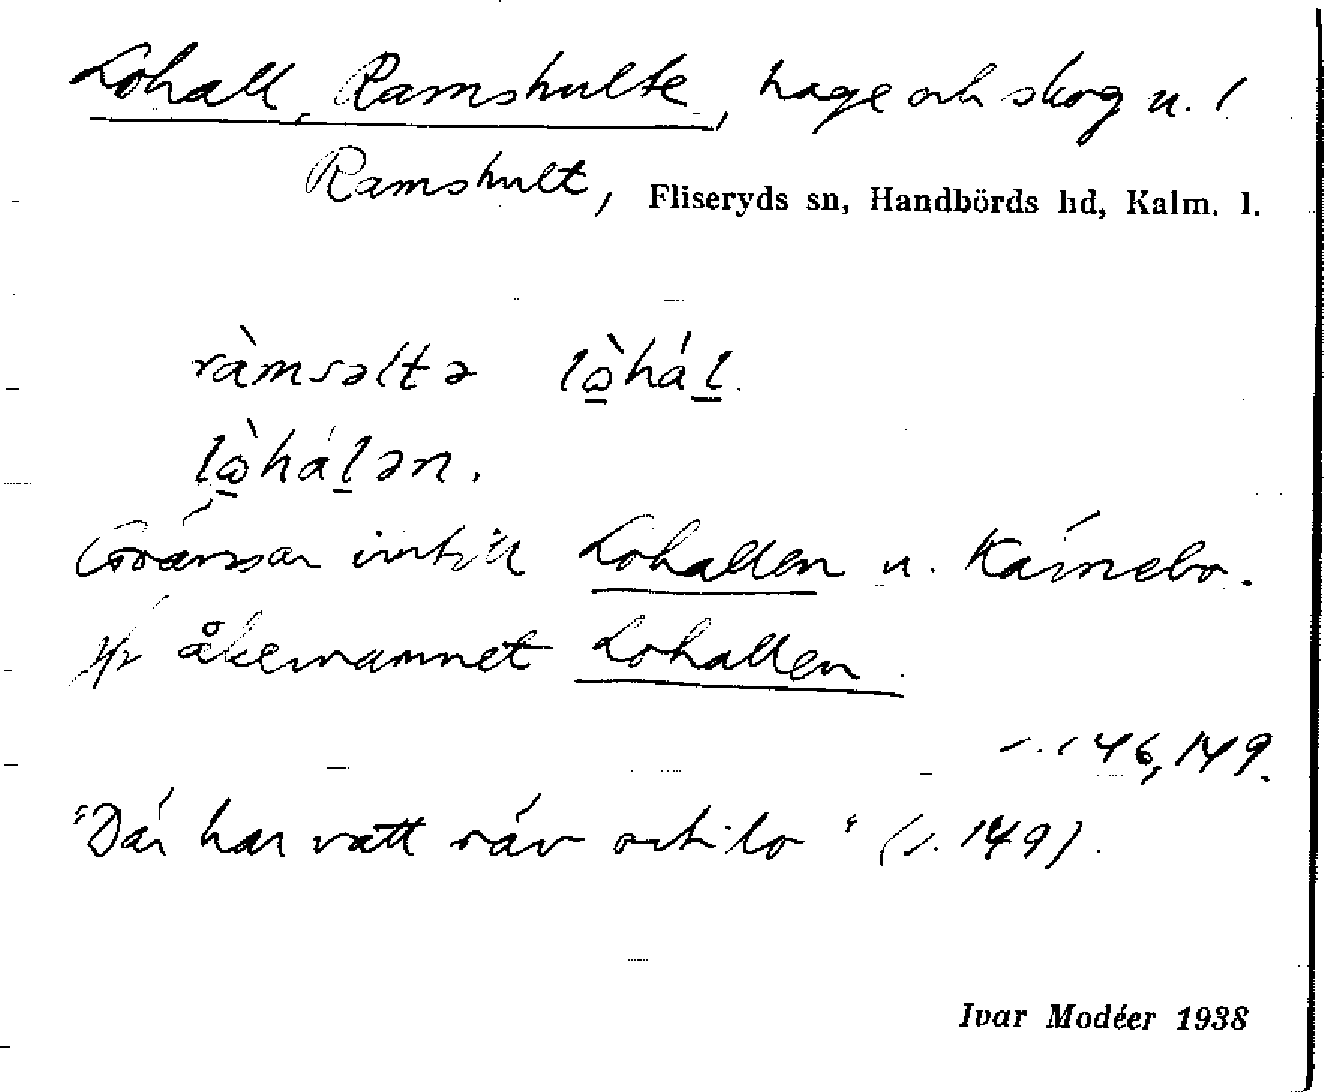 Lohall, Ramshulte, hage och skog u. /
Ramshult, Fliseryds sn, Handbörds hd, Kalm. l.
ràmsəltə lò̱háḻ.
lò̱háḻən.
Gränsar intill Lohallen u. Kärnebo.
Jfr åkernamnet Lohallen.
s. 146, 149.
"Där har vatt räv och lo" (s. 149).
Ivar Modéer 1938